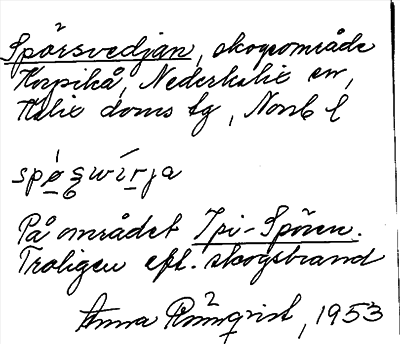 Spörsvedjan, skogsområde
Korpikå, Nederkalix sn,
Kalix doms lg, Norrb l
På området Ypi-Spören.
Troligen eft. skogsbrand
Anna Rönnqvist, 1953